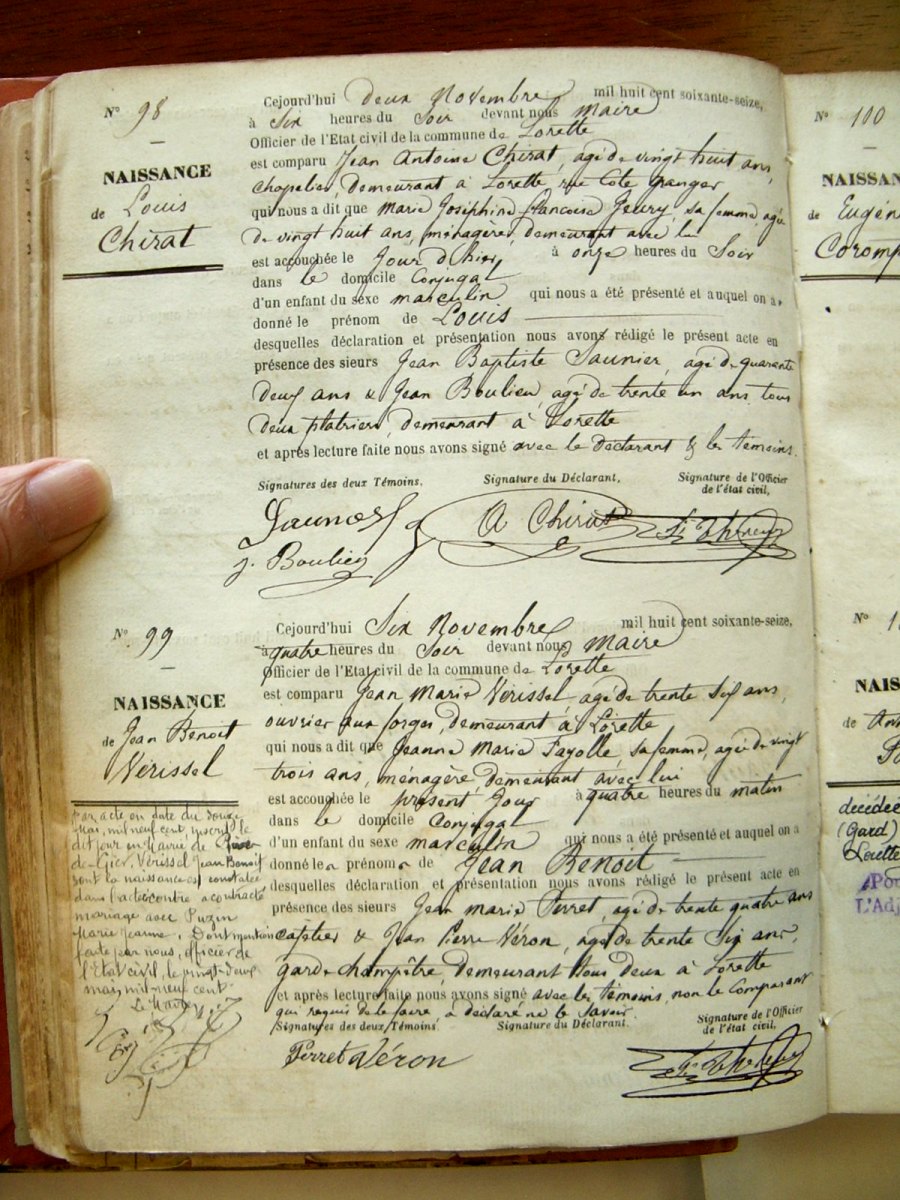 N° 98
NAISSANCE
de Louis
Chirat
Cejourd'hui deux Novembre mil huit cent soixante-seize,
à Six heures du Soir devant nous Maire
Officier de l'Etat civil de la commune de Lorette
est comparu Jean Antoine Chirat, agé de vingt huit ans,
chapelier, demeurant à Lorette, rue Côte Granger
qui nous a dit que Marie Joséphine Françoise Fleury, sa femme, agée
de vingt huit ans, ménagère, demeurant avec lui
est accouchée le Jour d'hier à onze heures du Soir
dans le domicile Conjugal
d'un enfant du sexe masculin qui nous a été présenté et auquel on a
donné le prénom de Louis
desquelles déclaration et présentation nous avons rédigé le présent acte en
présence des sieurs Jean Baptiste Saunier, agé de quarante
deux ans & Jean Boulieu, agé de trente un ans, tous
deux platriers, demeurant à Lorette
et après lecture faite nous avons signé avec le Déclarant & les témoins.
Signatures des deux Témoins,
Signature du Déclarant,
Signature de l'Officier
de l'état civil,
A Chirat
J. Boulieu
N° 99
NAISSANCE
de Jean Benoit
Vérissel
Cejourd'hui Six Novembre mil huit cent soixante-seize,
à quatre heures du Soir devant nous Maire
Officier de l'Etat civil de la commune de Lorette
est comparu Jean Marie Vérissel agé de trente six ans,
ouvrier aux forges, demeurant à Lorette
qui nous a dit que Jeanne Marie Fayolle, sa femme, agée de vingt
trois ans, ménagère, demeurant avec lui
est accouchée le présent Jour à quatre heures du matin
dans le domicile Conjugal
d'un enfant du sexe masculin qui nous a été présenté et auquel on a
donné le prénom de Jean Benoit
desquelles déclaration et présentation nous avons rédigé le présent acte en
présence des sieurs Jean marie Perret, agé de trente quatre ans
cafetier & Jean Pierre Véron, agé de trente six ans,
garde champêtre, demeurant tous deux à Lorette
et après lecture faite nous avons signé avec les témoins, non le Comparant
qui requis de le faire, a déclaré ne le Savoir.
Signatures des deux Témoins.
Signature du Déclarant.
Signature de l'Officier
de l'état civil,
Perret Véron
par acte en date du douze
Mai, mil neuf cent, inscrit le
dit jour en Mairie de Rive
de-Gier, Vérissel Jean Benoit
dont la naissance est constatée
dans l'acte contre a contracté
mariage avec Puzin
Marie Jeanne. Dont mention
faite par nous, officier de
l'Etat civil, le vingt-deux
mai mil neuf cent
Le Maire
N° 100
NAISSAN
de Eugén
Corom
N° 1
NAIS
de
décédée
(Gard)
Lorette
L'Adj